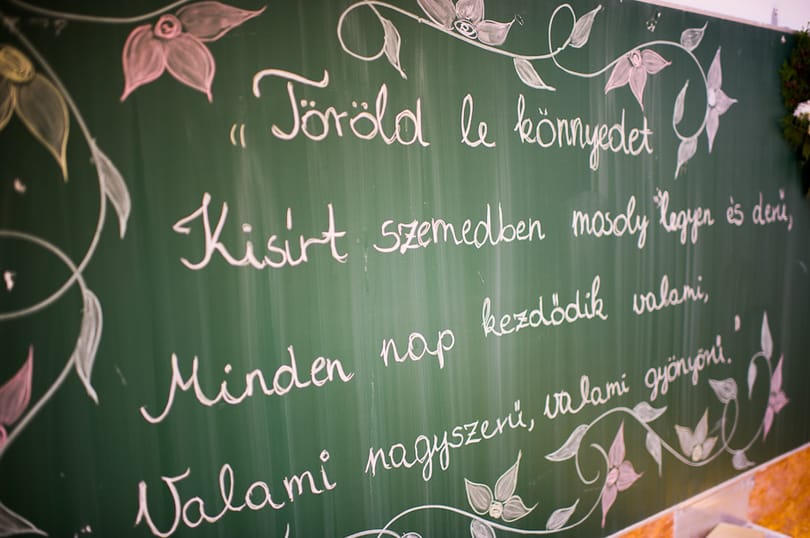 „Töröld le könnyedet
Kisírt szemedben mosoly legyen és derű,
Minden nap kezdődik valami,
Valami nagyszerű, valami gyönyörű.”